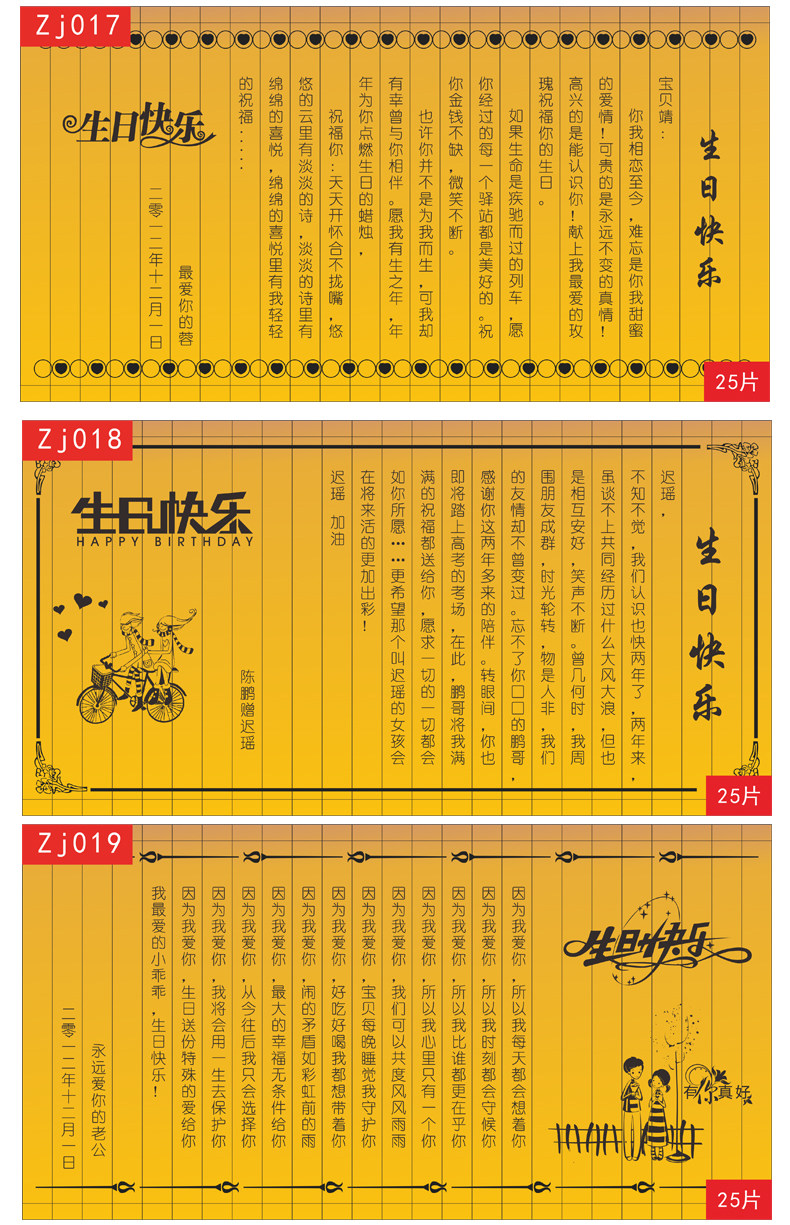 Zj017
生日快乐
宝贝靖：
你我相恋至今，难忘是你我甜蜜
的爱情！可贵的是永远不变的真情！
高兴的是能认识你！献上我最爱的玫
瑰祝福你的生日。
如果生命是疾驰而过的列车，愿
你经过的每一个驿站都是美好的。祝
你金钱不缺，微笑不断。
也许你并不是为我而生，可我却
有幸曾与你相伴。愿我有生之年，年
年为你点燃生日的蜡烛，
祝福你：天天开怀合不拢嘴，悠
悠的云里有淡淡的诗，淡淡的诗里有
绵绵的喜悦，绵绵的喜悦里有我轻轻
的祝福：……
最爱你的蓉
二零一二年十二月一日
生日快乐
25片
Zj018
生日快乐
迟瑶，
不知不觉，我们认识也快两年了，两年来，
虽谈不上共同经历过什么大风大浪，但也
是相互安好，笑声不断。曾几何时，我周
围朋友成群，时光轮转，物是人非，我们
的友情却不曾变过。忘不了你口口的鹏哥，
感谢你这两年多来的陪伴。转眼间，你也
即将踏上高考的考场，在此，鹏哥将我满
满的祝福都送给你，愿求一切的一切都会
如你所愿……更希望那个叫迟瑶的女孩会
在将来活的更加出彩！
迟瑶 加油
陈鹏赠迟瑶
生日快乐
HAPPY BIRTHDAY
25片
Zj019
生日快乐
有你真好
因为我爱你，所以我每天都会想着你
因为我爱你，所以我时刻都会守候你
因为我爱你，所以我比谁都更在乎你
因为我爱你，所以我心里只有一个你
因为我爱你，我们可以共度风风雨雨
因为我爱你，宝贝每晚睡觉我守护你
因为我爱你，好吃好喝我都想带着你
因为我爱你，闹的矛盾如彩虹前的雨
因为我爱你，最大的幸福无条件给你
因为我爱你，从今往后我只会选择你
因为我爱你，我将会用一生去保护你
因为我爱你，生日送份特殊的爱给你
我最爱的小乖乖，生日快乐！
永远爱你的老公
二零一二年十二月一日
25片